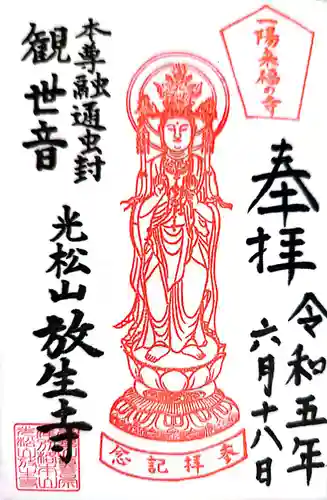 一陽来福の寺
奉拝
令和五年
六月十八日
本尊融通虫封
観世音
光松山放生寺
参拝記念